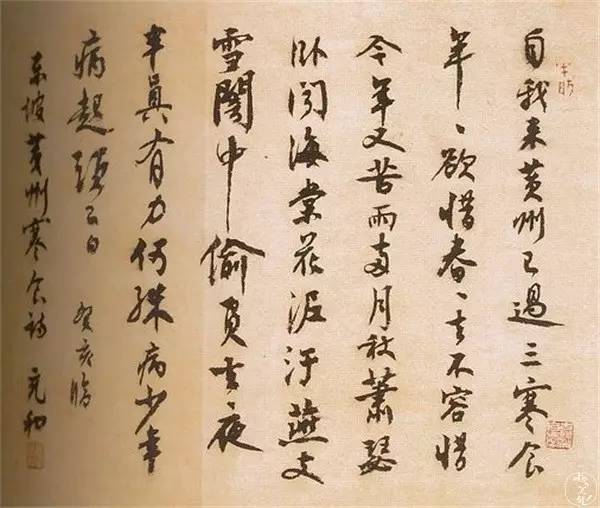 自我来黄州已過三寒食
年、欲惜春、去不容惜
今年又苦雨两月秋蕭瑟
卧聞海棠花泥汙燕支
雪闇中偷負去夜
半真有力何殊病少年
病起頭已白 癸亥臨
東坡黄州寒食詩 充和